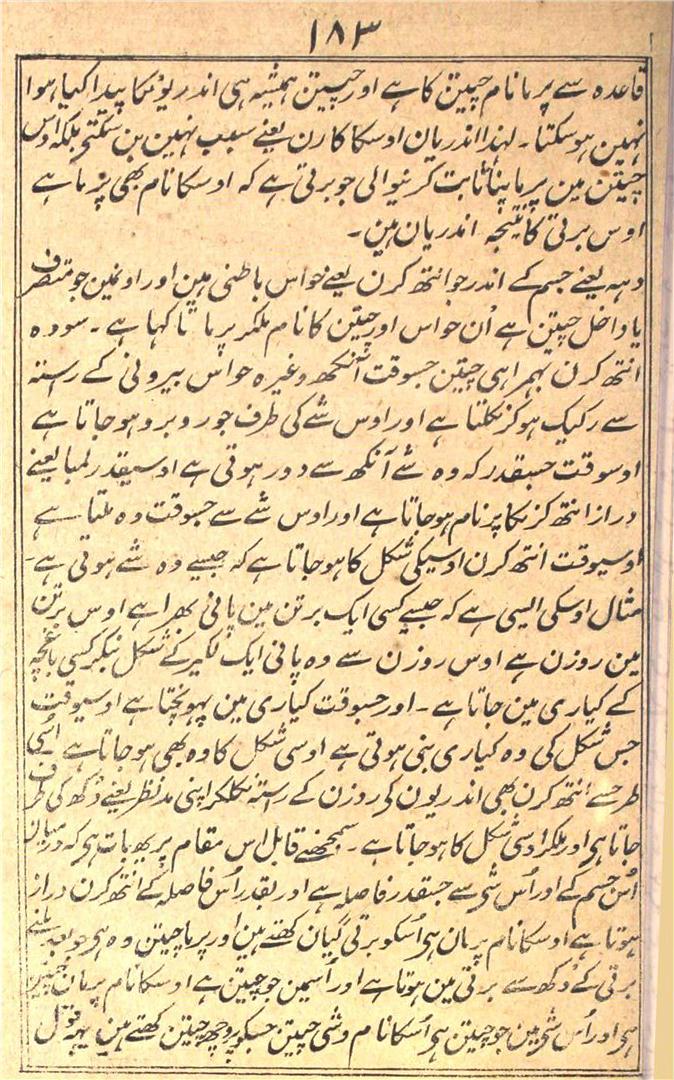 ۱۸۳
قاعدہ سے پرما نام چیتن کا ہے اور چیتن ہمیشہ ہی اندریونکا پیدا کیا ہوا
نہین ہوسکتا۔ لہذا اندریان اوسکا کارن یعنے سبب نہین بن سکتی بلکہ اوس
چیتن مین پرما پنا ثابت کرنیوالی جو برتی ہے کہ اوسکا نام بھی پرما ہے
اوس برتی کا نتیجہ اندریان ہین۔
دہہ یعنے جسم کے اندر جو انتھ کرن یعنے حواس باطنی ہین اور اونمین جو متصرف
یا داخل چیتن ہے اُن حواس اور چیتن کا نام ملکر پرماتا کہا ہے۔ سو وہ
انتھ کرن بہمراہی چیتن جسوقت آنکھ وغیرہ حواس بیرونی کے رستہ
سے رکیک ہوکر نکلتا ہے اور اوس شے کی طرف جو روبرو ہو جاتا ہے
اوسوقت جسقدر کہ وہ شے آنکھ سے دور ہوتی ہے اوسیقدر لمبا یعنے
دراز انتھ کرنکا پرنام ہو جاتا ہے اور اوس شے سے جسوقت وہ ملتا ہے
اوسیوقت انتھ کرن اوسیکی شکل کا ہو جاتا ہے کہ جیسے وہ شے ہوتی ہے۔
مثال اوسکی ایسی ہے کہ جیسے کسی ایک برتن مین پانی بھرا ہے اوس برتن
مین روزن ہے اوس روزن سے وہ پانی ایک لکیر کے شکل بنکر کسی باغیچہ
کے کیاری مین جاتا ہے۔ اور جسوقت کیاری مین پہونچتا ہے اوسیوقت
جس شکل کی وہ کیاری بنی ہوتی ہے اوسی شکل کا وہ بھی ہو جاتا ہے اسی
طرح سے انتھ کرن بھی اندریون کی روزن کے رستہ نکلکر اپنی مدنظر یعنے دکھ کی طرف
جاتا ہی اور ملکر اوسی شکل کا ہو جاتا ہے۔ سمجھنے قابل اس مقام پر یہ بات ہی کہ درمیان
اُس جسم کے اور اُس شی سے جسقدر فاصلہ ہے اور بقدر اُس فاصلہ کے انتھ کرن دراز
ہوتا ہے اوسکا نام پرمان ہی اُسکو برتی گیان کہتے ہین اور پرما چیتن وہ ہی جو بعد ملنے
برتی کے دکھ سے برتی مین ہوتا ہے اور اُسمین جو چیتن ہے اوسکا نام پرمان چیتن
ہی اور اُس شی مین جو چیتن ہی اُسکا نام وشی چیتن جسکو کہتے ہین یہہ قول